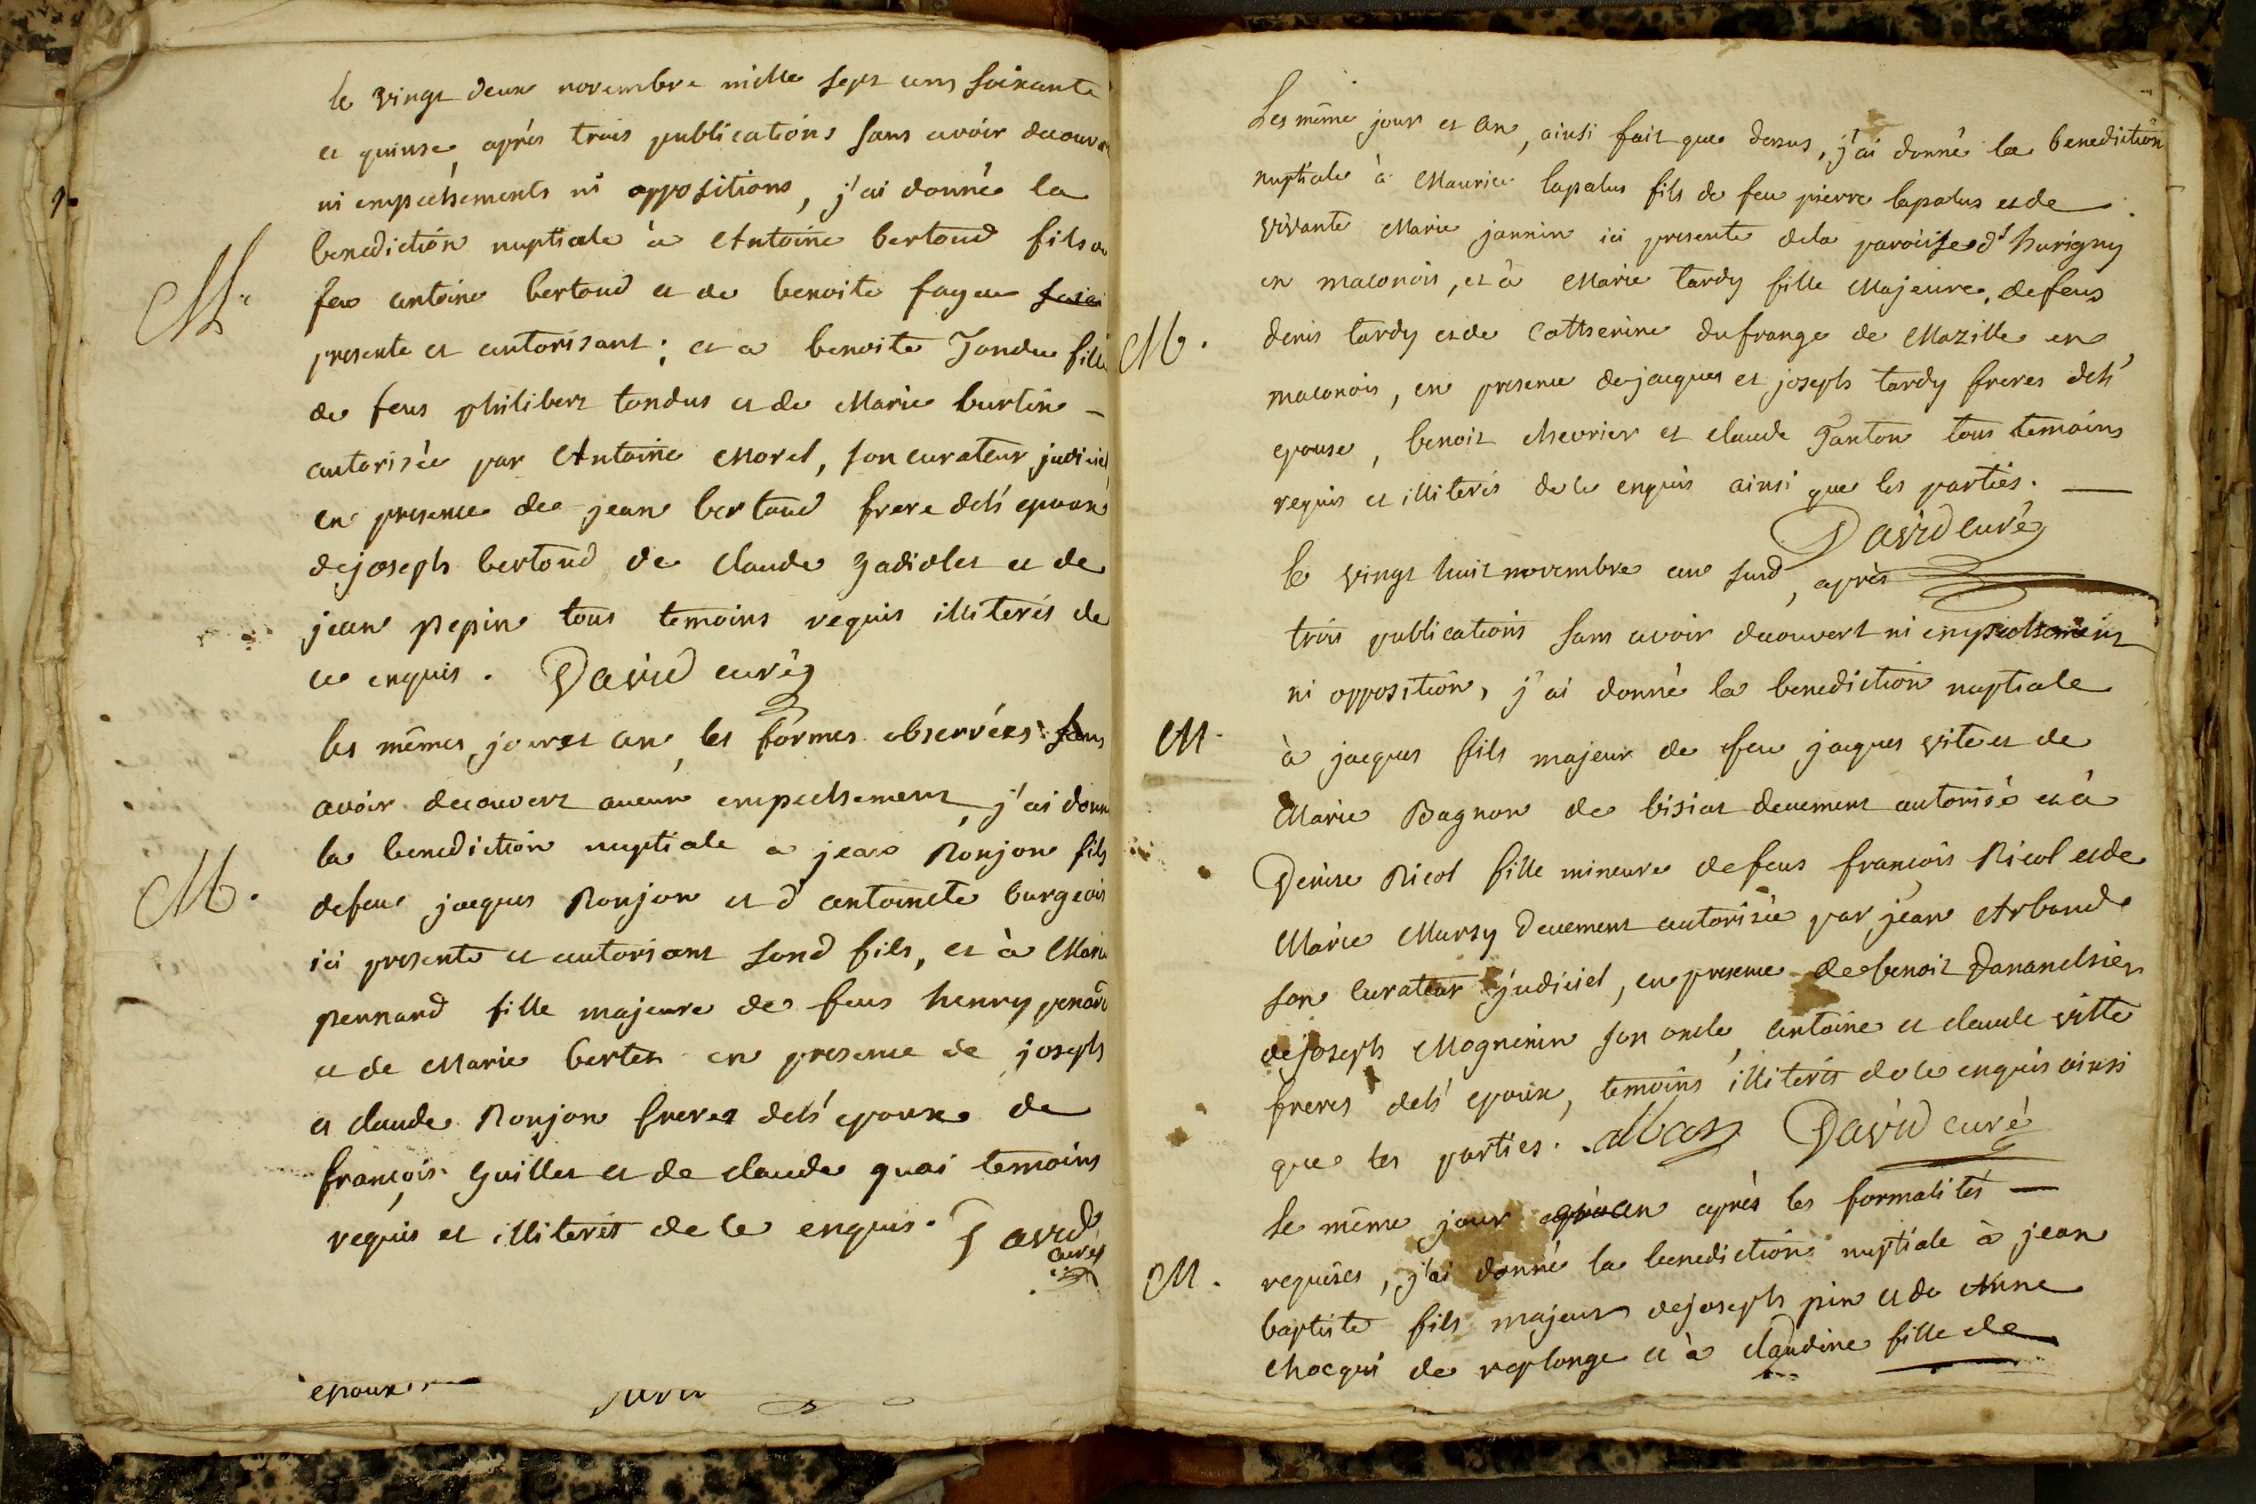 le vingt deux novembre mille sept cens soixante
et quinse, après trois publications sans avoir decouve
ni empechements ni oppositions, j'ai donné la
benediction nuptiale à Antoine bertoud fils
M.
feu antoine bertoud et de benoite fayen
presente et autorisant; et a benoite Tondu fille
de feus philibert tondus et de Marie burtin
autorisée par Antoine Morel, son curateur judiciel
en presence de jean bertoud frere dels' epoux
de joseph bertoud de claude et de
jean pepin tous temoins requis illiterés de
ce enquis. David curé
les mêmes jour et an, les formes observées sans
avoir decouvert aucun empechement, j'ai donn
la benediction nuptiale a jean Ronjon fils
M.
defeu jacques Ronjon et d' antoinete burgeois
ici presente et autorisant sond fils, et à Marie
pennard fille majeure de feus henry penard
et de Marie berter en presence de joseph
et claude Ronjon freres dels' epoux de
françois Guillet et de claude quai temoins
requis et illiterés de ce enquis. David
curé
epoux
Les même jour et an, ainsi fait que dessus, j'ai donné la benediction
nuptiale à Maurice lapalus fils de feu pierre lapalus et de
vivante Marie jannin ici presente dela paroisse d'hurigny
en maconois, et à Marie tardy fille Majeure, defeus
M.
denis tardy et de Catherine dufrange de Mazille en
maconois, en presence de jacques et joseph tardy freres dels'
epouse, benoit chevrier et claude Tanton tous temoins
requis et illiterés de ce enquis ainsi que les parties.
David curé
le vingt huit novembre an susd, après
trois publications sans avoir decouvert ni empechement
ni opposition, j'ai donné la benediction nuptiale
M.
à jacques fils majeur de feu jacques vite et de
Marie Bagnon de bisiat deuement autorisé et à
Denise Ricol fille mineure defeus françois Ricol et de
Marie Mursy deuement autorisée par jean Arband
son curateur judiciel, en presence de benoit Dananchier
de joseph Mognenin son oncle, antoine et claude vitte
freres dels' epoux, temoins illiterés de ce enquis ainsi
que les parties. David curé
le même jour an après les formalités
M.
requises, j'ai donné la benediction nuptiale à jean
baptiste fils majeur de joseph pin et de Anne
chocqui de replonge et à claudine fille de